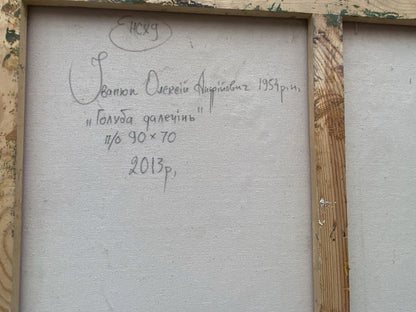 НСХУ
Іванюк Олексій Андрійович 1954р.н.
„Голуба далечінь"
п/о 90×70
2013р,